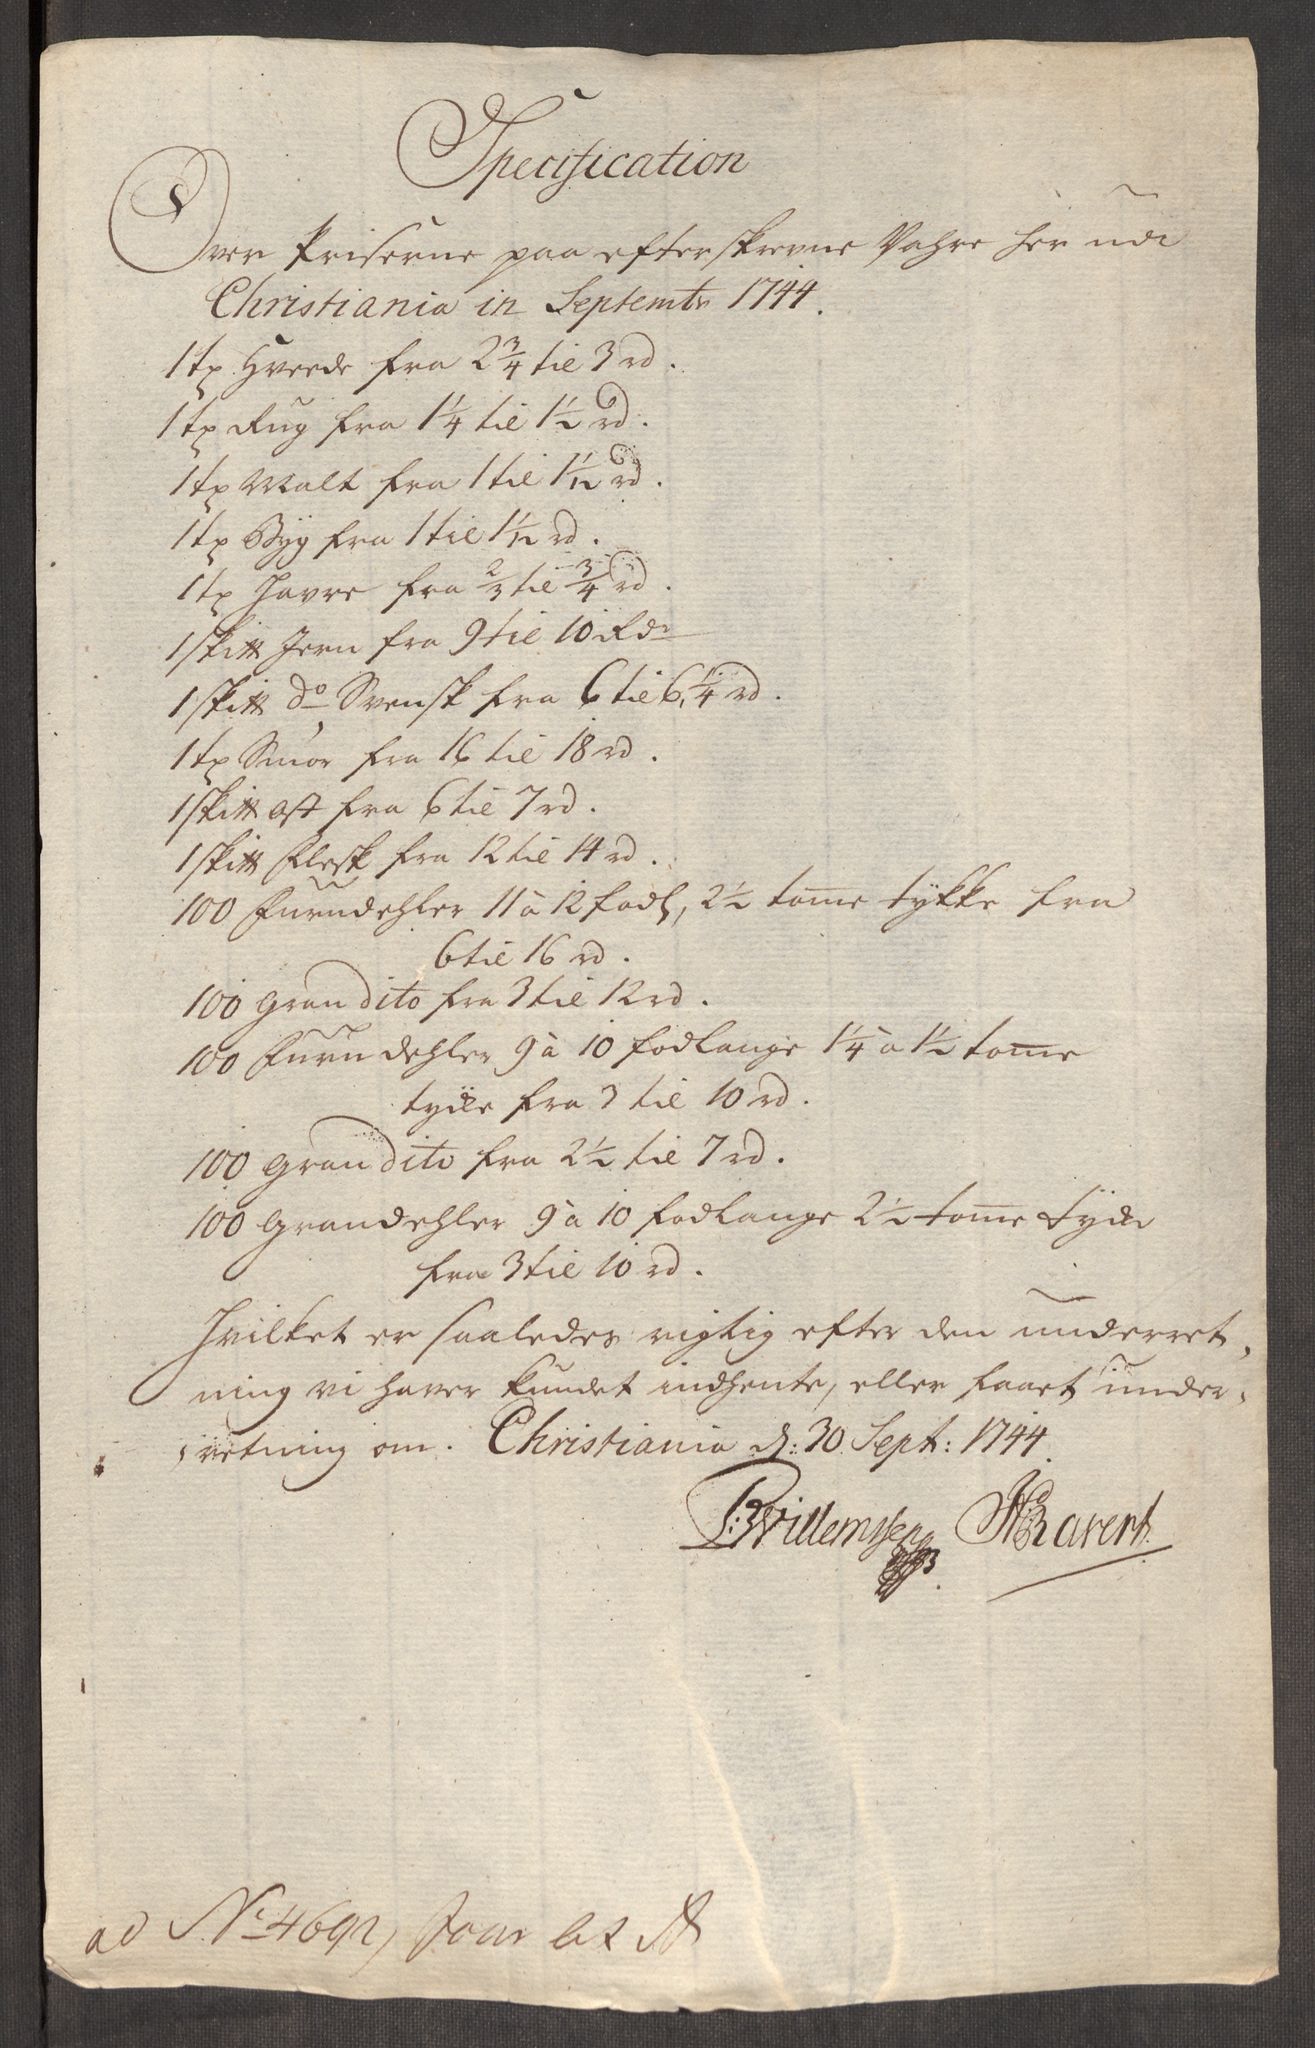 Specification
Over Priserne paa efterskrevne Vahre her udi
Christiania in Septembr 1744.
1 tp Hvede fra 2 3/4 til 3 rd.
1 tp Rug fra 1 1/4 til 1 1/2 rd.
1 tp Malt fra 1 til 1 1/12 rd.
1 tp Byg fra 1 til 1 1/12 rd.
1 tp Havre fra 2/3 til 3/4 rd.
1 skitt Jern fra 9 til 10 Rdr
1 skitt do Svensk fra 6 til 6 1/4 rd.
1 tp Smør fra 16 til 18 rd.
1 skitt ost fra 6 til 7 rd.
1 skitt Flesk fra 12 til 14 rd.
100 Furudehler 11 à 12 fodl, 2 1/2 tome tykke fra
6 til 16 rd.
100 Gran dito fra 3 til 12 rd.
100 Furudehler 9 à 10 fodlange 1 1/4 à 1 1/2 tome
tycke fra 3 til 10 rd.
100 Gran dito fra 2 1/2 til 7 rd.
100 Grandehler 9 à 10 fodlange 2 1/2 tome tycke
fra 3 til 10 rd.
Hvilket er saaledes rigtig efter den underret,
ning vi haver kundet indhente, eller faaet under,
retning om. Christiania d: 30 Sept: 1744.
Willemssen Ravert
ad No 4692, Jour